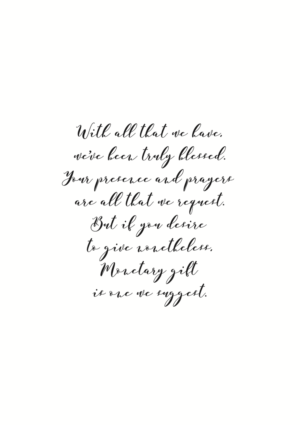 With all that we have,
we've been truly blessed.
Your presence and prayers
are all that we request.
But if you desire
to give nonetheless,
Monetary gift
is one we suggest.